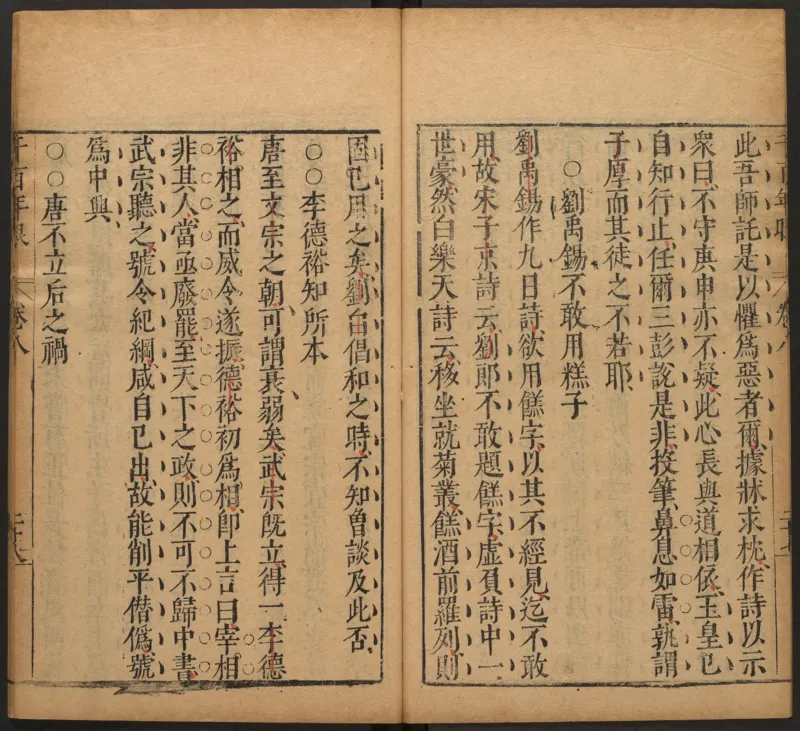 此吾師託是以懼為惡者爾據牀求枕作詩以示
衆曰不守庚申亦不疑此心長與道相依玉皇已
自知行止任爾三彭說是非投筆鼻息如雷孰謂
子厚而其徒之不若耶
○劉禹錫不敢用糕子
劉禹錫作九日詩欲用餻字以其不經見迄不敢
用故宋子京詩云劉郎不敢題餻字虛負詩中一
世豪然白樂天詩云移坐就菊叢餻酒前羅列則
固已用之矣劉白倡和之時不知曾談及此否
○○李德裕知所本
唐至文宗之朝可謂衰弱矣武宗旣立得一李德
裕相之而威令遂振德裕初為相卽上言曰宰相
非其人當亟廢罷至天下之政則不可不歸中書
武宗聽之號令紀綱咸自已出故能削平僭偽號
為中興
○○唐不立后之禍
千百年眼 卷八